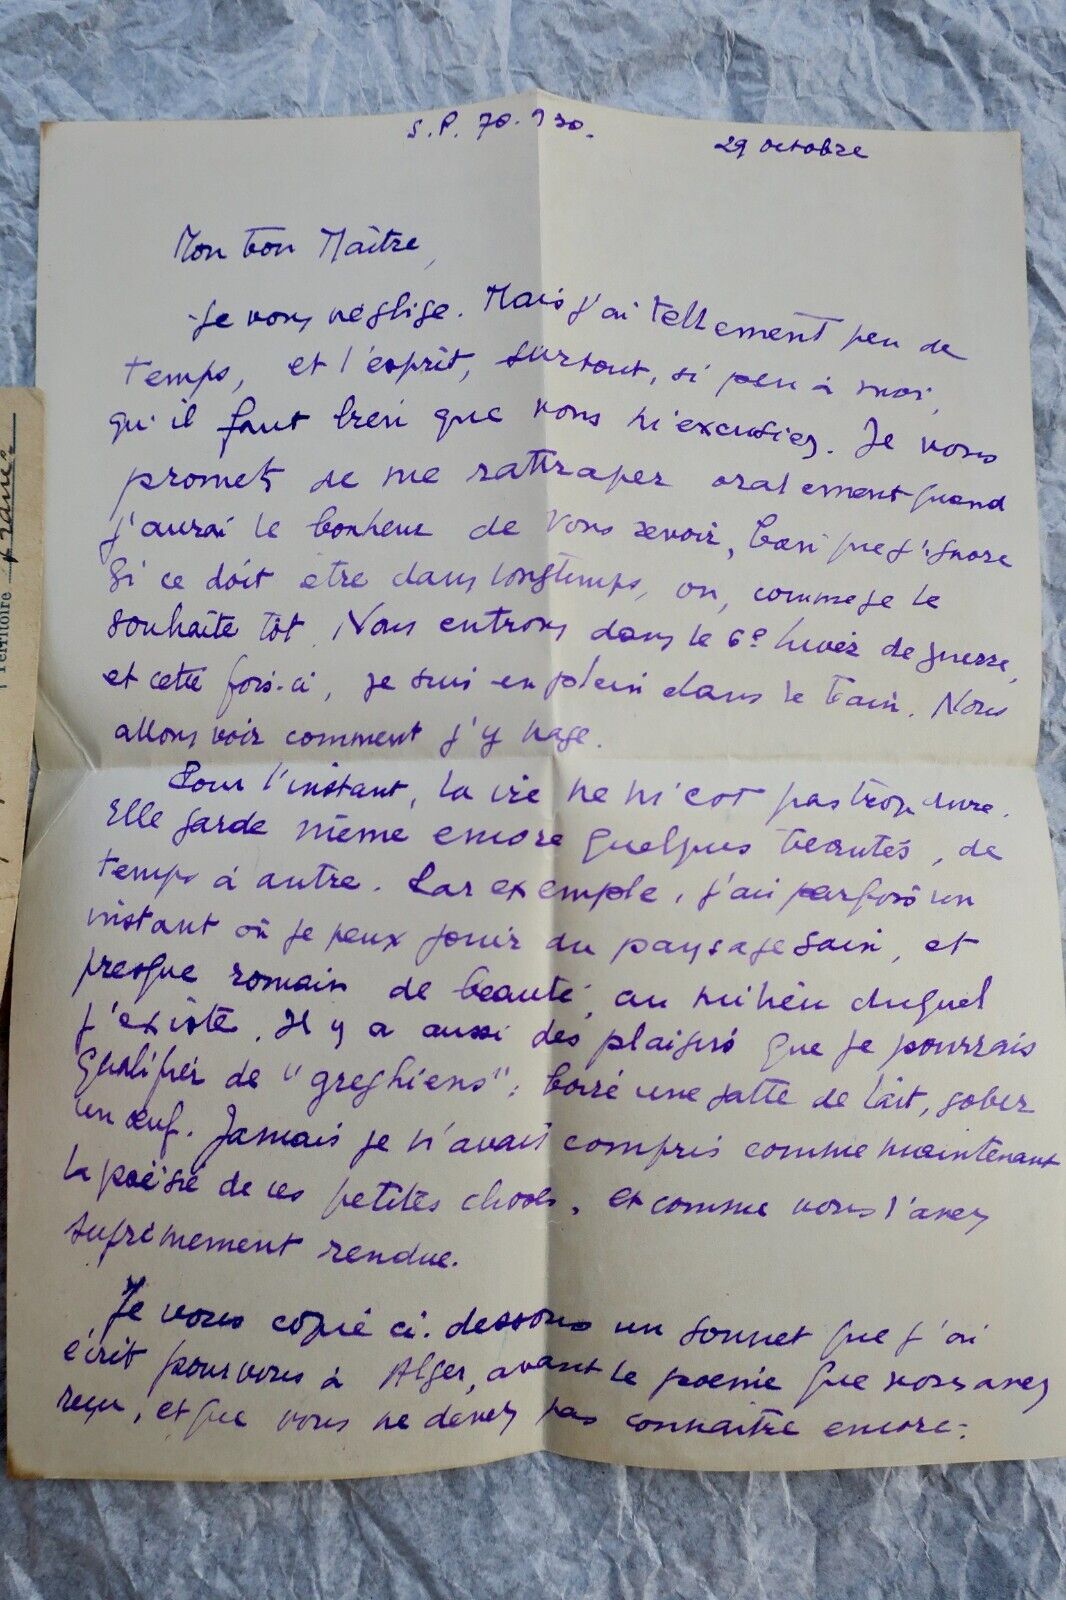 S.P. 70.930.
29 octobre
Mon bon Maître,
Je vous néglige. Mais j'ai tellement peu de
temps, et l'esprit, surtout, si peu à moi,
qu'il faut bien que vous m'excusiez. Je vous
promets de me rattraper oralement quand
j'aurai le bonheur de vous revoir, bien que j'ignore
si ce doit être dans longtemps, ou, comme je le
souhaite tôt. Nous entrons dans le 6e hiver de guerre,
et cette fois-ci, je suis en plein dans le bain. Nous
allons voir comment j'y nage.
Pour l'instant, la vie ne m'est pas trop dure.
Elle garde même encore quelques beautés, de
temps à autre. Par exemple, j'ai parfois un
instant où je peux jouir du paysage sain, et
presque romain de beauté, au milieu duquel
j'existe. Il y a aussi des plaisirs que je pourrais
qualifier de "greghiens" : boire une jatte de lait, gober
un œuf. Jamais je n'avais compris comme maintenant
la poésie de ces petites choses, et comme vous l'avez
suprêmement rendue.
Je vous copie ci-dessous un sonnet que j'ai
écrit pour vous à Alger, avant le poème que vous avez
reçu, et que vous ne devez pas connaître encore :
Territoire